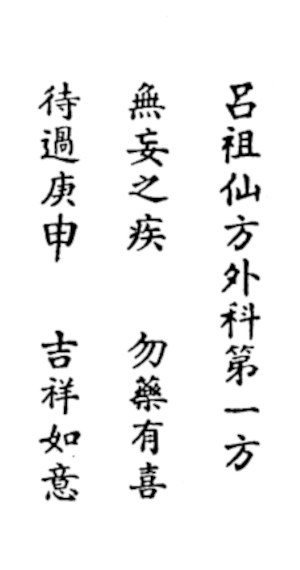 呂祖仙方外科第一方
無妄之疾　勿藥有喜
待過庚申　吉祥如意